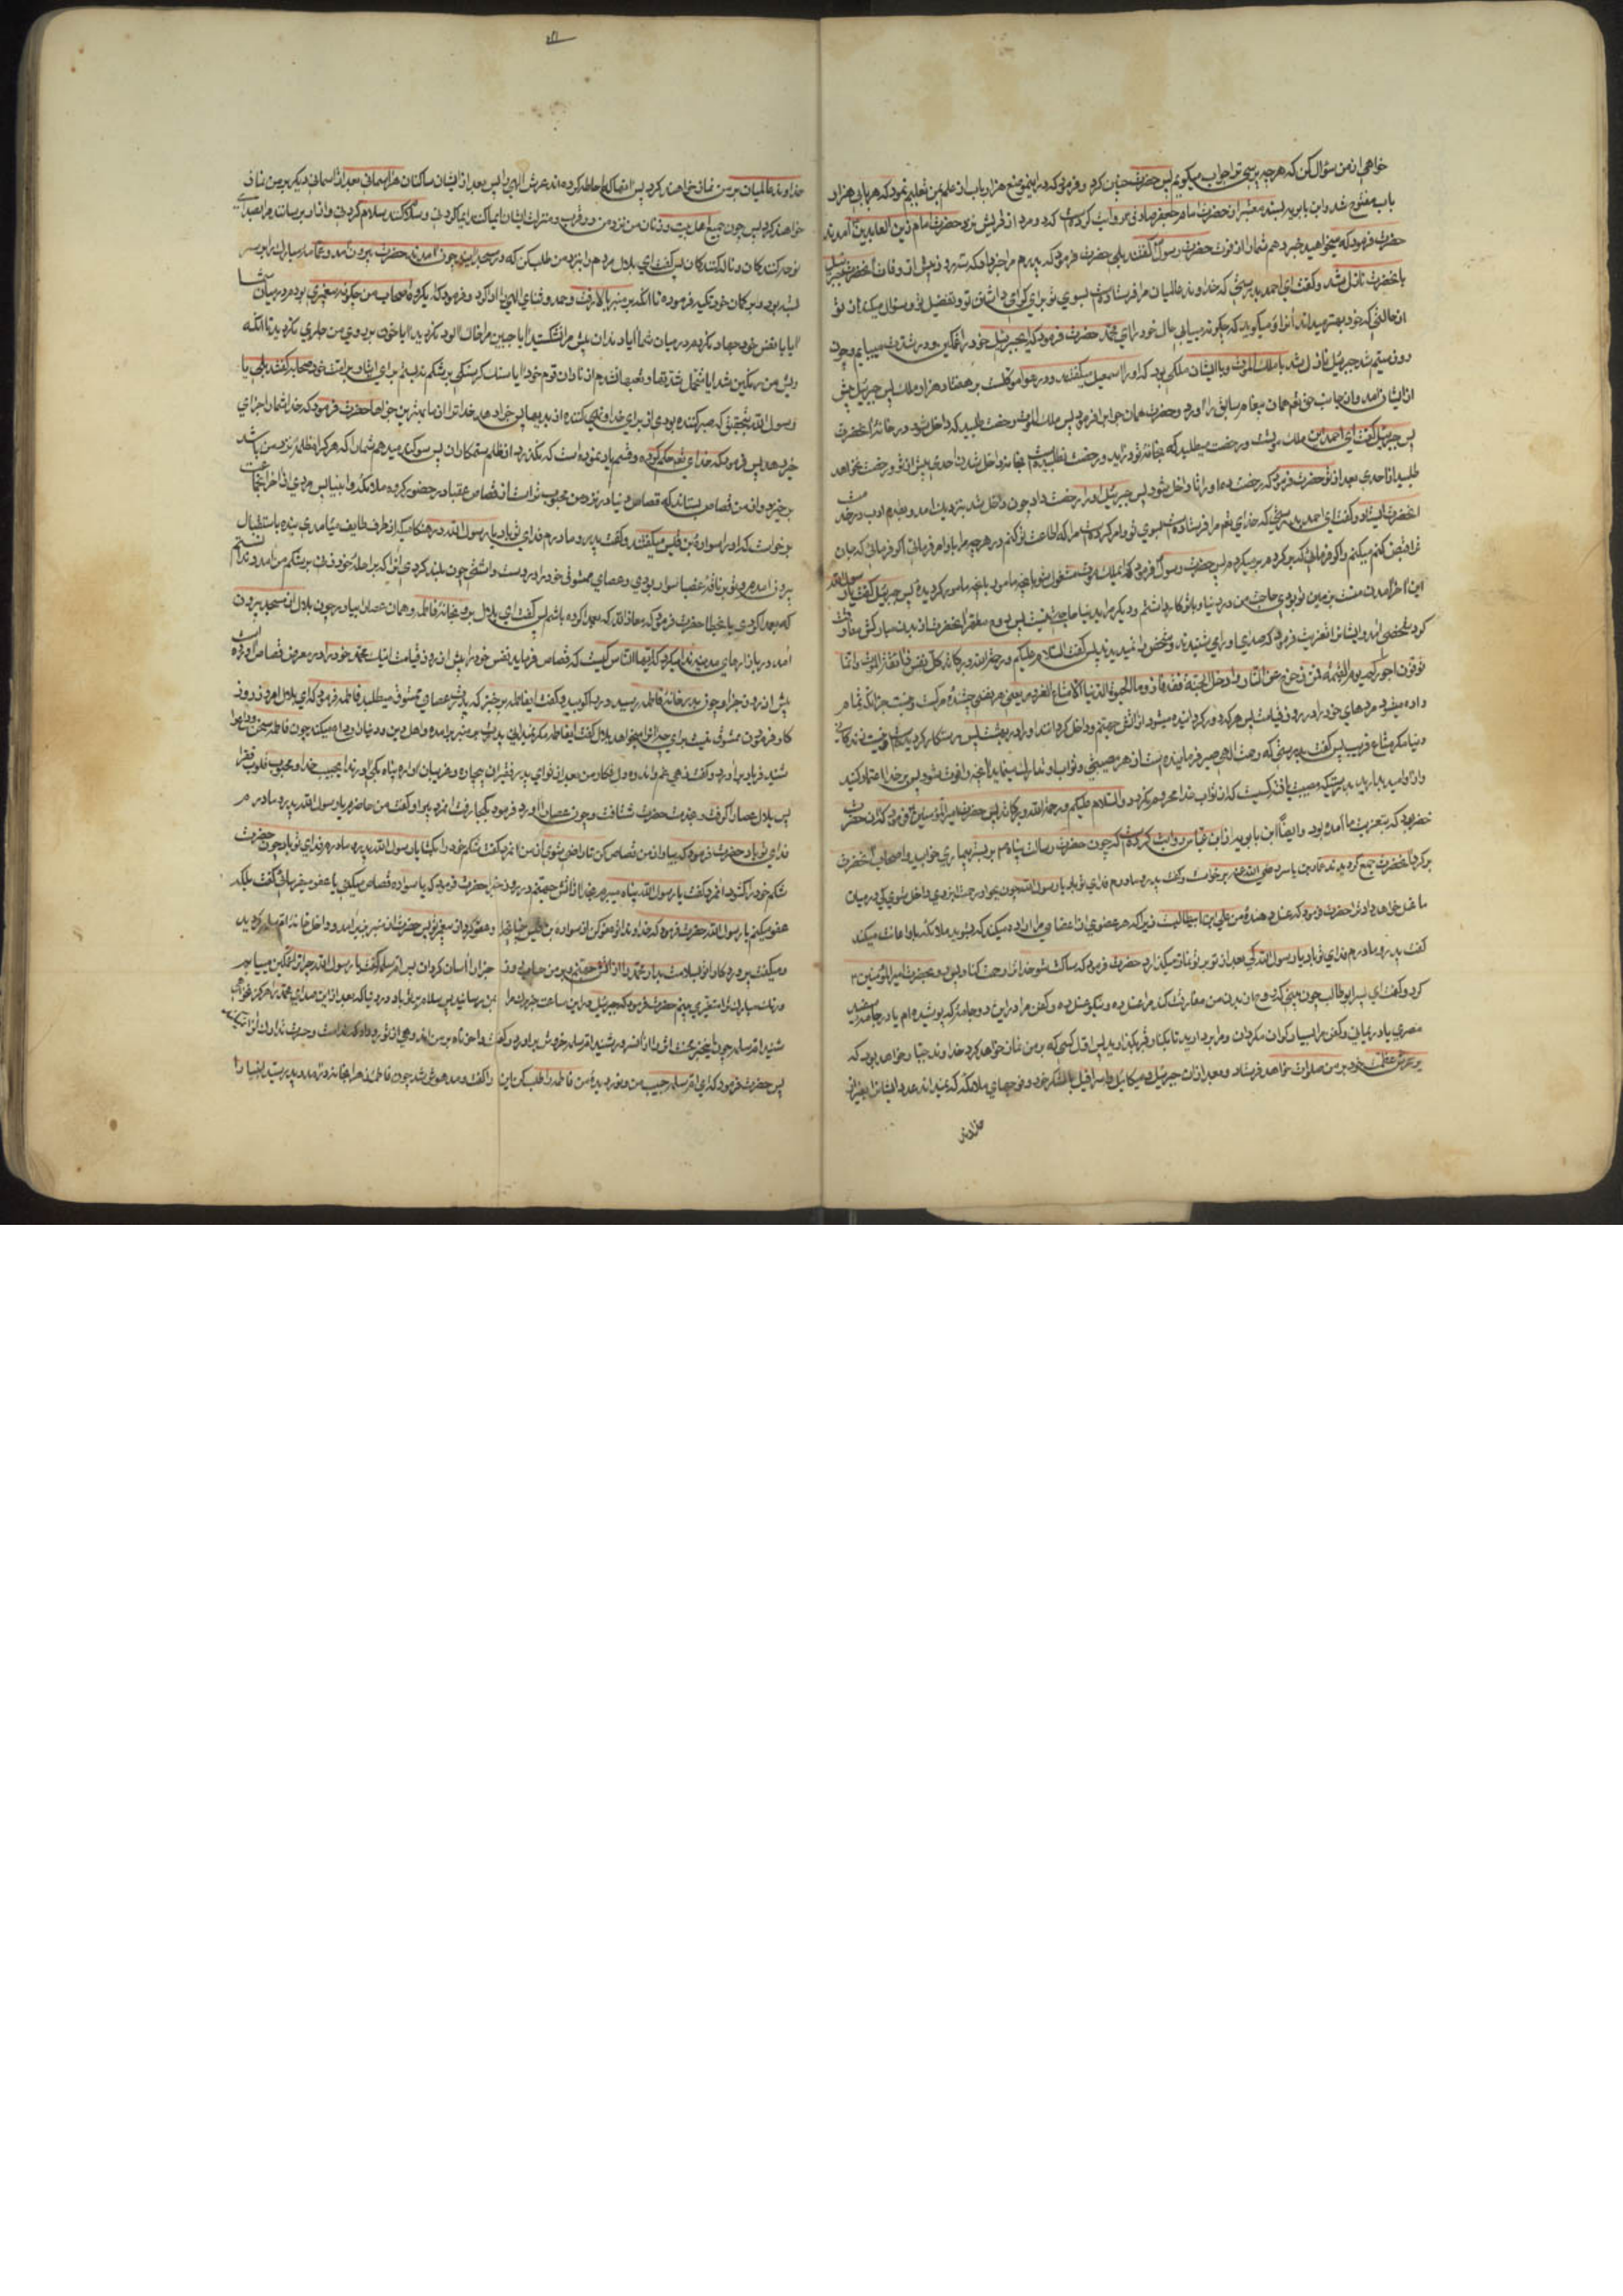 خواهی از من سؤال کن که هر چه پرسی ترا جواب میکویم پس حضرت چنان کرد و فرمود که در آن موضع هزار باب از علم بمن تعلیم نمود که هر بابی هزار
باب مفتوح شد و ابن بابویه بسند معتبر از حضرت امام جعفر صادق روایت کرده است که دو مرد از قریش نزد حضرت امام زین العابدین آمدند
حضرت فرمود که میخواهید خبر دهم شما را از فوت حضرت رسول گفتند بلی حضرت فرمود که پدرم مرا خبر داد که سه روز پیش از وفات آنحضرت جبرئیل
بآنحضرت نازل شد و گفت ای احمد بدرستی که خداوند عالمیان مرا فرستاده است بسوی تو برای کرامی داشتن تو و تفضیل تو و سؤال میکند از تو
از حالتی که خود بهتر میداند از تو میکوید که چکونه مییابی حال خود را ای محمد حضرت فرمود که ای جبرئیل خود را غمکین و در شدت مییابم و چون
روز سیم شد جبرئیل نازل شد با ملک الموت و با ایشان ملکی بود که او را اسمعیل میگفتند و در هوا موکلست بر هفتاد هزار ملک پس جبرئیل پیش
از ایشان آمد و از جانب حق تعم همان پیغام سابق را آورد و حضرت همان جواب را فرمود پس ملک الموت رخصت طلبید که داخل شود در خانه آنحضرت
پس جبرئیل گفت ای احمد این ملک موتست و رخصت میطلبد که بخانه تو در آید و رخصت نطلبیده است
طلبید از احدی بعد از تو حضرت فرمود که رخصت ده او را تا داخل شود پس جبرئیل او را رخصت داد چون داخل شد بنزدیک آمد و بقدم ادب در خدمت
آنحضرت ایستاد و گفت ای احمد بدرستی که خدای تعم مرا فرستاده است بسوی تو و امر کرده است مرا که اطاعت تو کنم در هر چه مرا بآن امر فرمائی اکر فرمائی که جان
ترا قبض کنم میکنم و اکر فرمائی که برکردم بر میکردم پس حضرت رسول فرمود که ای ملک الموت مشغول شو بآنچه مأمور کردیده پس جبرئیل گفت یا رسول الله
این آخر آمدن منست بزمین تو بودی حاجت من در دنیا و با تو کار داشتم و دیکر مرا بدنیا حاجتی نیست پس روح مقدس آنحضرت از بدن مبارکش مفارقت
کرد شخصی آمد و ایشانرا تعزیت فرمود که صدای او را می شنیدند و شخص او را نمیدیدند پس گفت السلام علیکم و رحمة الله و برکاته کل نفس ذائقة الموت و انما
توفون اجورکم یوم القیمة فمن زحزح عن النار و ادخل الجنة فقد فاز و ما الحیوة الدنیا الا متاع الغرور یعنی هر نفسی چشنده مرکست و نیست جز آنکه تمام
داده میشود مزدهای خود را در روز قیامت پس هر که دور کردانیده میشود از آتش جهنم و داخل کردانند او را در بهشت پس رستکار کردیده است و نیست زندکانی
دنیا مکر متاع فریب پس گفت بدرستی که رحمت الهی صبر فرماینده است از هر مصیبتی و ثواب او تدارک مینماید آنچه را فوت شود پس بر خدا اعتماد کنید
و از او امید بدارید بدرستیکه مصیبت یافته کسیست که از ثواب خدا محروم کردد و السلام علیکم و رحمة الله و برکاته پس حضرت امیرالمؤمنین ع فرمود که این حضرت
خضر بود که بتعزیت ما آمده بود و ایضاً ابن بابویه از ابن عباس روایت کرده است که چون حضرت رسالت پناه ص بر بستر بیماری خوابید و اصحاب آنحضرت
بر کرد آنحضرت جمع کردیدند عمار بن یاسر رضی الله عنه برخاست و گفت پدر و مادرم فدای تو باد یا رسول الله چون بجوار رحمت ایزدی داخل شوی کی در میان
ما غسل خواهد داد ترا حضرت فرمود که غسل دهنده من علی بن ابیطالبست زیرا که هر عضوی از اعضای مرا اراده میکند که بشوید ملائکه با او اعانت میکنند
گفت پدر و مادرم فدای تو باد یا رسول الله کی بعد از تو بر تو نماز میکذارد حضرت فرمود که ساکت شو خدا ترا رحمت کناد پس رو بحضرت امیرالمؤمنین ع
کرد و گفت ای پسر ابوطالب چون ببینی که روح من از بدن من مفارقت کند مرا غسل ده و نیکو غسل ده و کفن مرا در این دو جامه که پوشیده ام یا در جامه سفید
مصری یا برد یمانی و کفن مرا بسیار کران مکردان و مرا بردارید تا بکنار قبر بکذارید پس اول کسی که بر من نماز خواهد کرد خداوند جبار خواهد بود که
بر عرش عظمت خود بر من صلوات خواهد فرستاد و بعد از آن جبرئیل و میکائیل و اسرافیل با لشکر خود و فوجهای ملائکه که نمیداند عدد ایشانرا بغیر از
خداوند
خداوند عالمیان بر من نماز خواهند کرد پس آنها که احاطه کرده اند عرش الهی را پس بعد از ایشان ساکنان هر آسمانی بعد از آسمانی دیکر بر من نماز
خواهند کرد پس چون جمیع اهل بیت و زنان من نزد من در قرب و منزلت ایشان ایما کنند ایما کردنی و سلام کنند سلام کردنی و آزار نرسانند مرا بصدای
نوحه کنندکان و ناله کنندکان پس گفت ای بلال مردم را بنزد من طلب کن که در مسجد جمع آیند چون آمدند حضرت بیرون آمد و عمامه مبارک را بر سر
بسته بود و بر کمان خود تکیه فرموده تا آنکه بر منبر بالا رفت و حمد و ثنای الهی ادا کرد و فرمود که ای کروه اصحاب من چکونه پیغمبری بودم در میان شما
آیا بنفس خود جهاد نکردم در میان شما آیا دندان پیش مرا نشکستید آیا جبین مرا خاک آلود نکردید آیا خون بر روی من جاری نکردید تا آنکه
ریش من رنکین شد آیا متحمل شدتها و تعبها نشدم از نادان قوم خود آیا سنک کرسنکی بر شکم نبستم برای ایثار بر امت خود صحابه گفتند بلی یا
رسول الله بتحقیق که صبر کننده بودی از برای خدا و نهی کننده از بدیها پس جزا دهد خدا ترا از ما بهترین جزاها حضرت فرمود که خدا شما را جزای
خیر دهد پس فرمود که خدای تعم حکم کرده و قسم یاد نموده است که نکذرد از ظلم ستمکاران پس سوکند میدهم شما را که هر که را مظلمه نزد من باشد
برخیزد و از من قصاص بستاند که قصاص دنیا در نزد من محبوب تر است از قصاص عقبا در حضور کروه ملائکه و انبیا پس مردی از آخر جماعت
برخواست که او را سوادة بن قیس میگفتند و گفت پدر و مادرم فدای تو باد یا رسول الله در هنکامیکه از طرف طایف می آمدی بنده باستقبال
بیرون آمدم و تو بر ناقه عضبا سوار بودی و عصای ممشوق خود را در دست داشتی چون بلند کردی آنرا که بر راحله خود زنی بر شکم من آمد و ندانستم
که بعمد کردی یا بخطا حضرت فرمود که معاذ الله که بعمد کرده باشم پس گفت ای بلال برو بخانه فاطمه و همان عصا را بیاور چون بلال از مسجد بیرون
آمد در بازارهای مدینه ندا میکرد که ایها الناس کیست که قصاص فرماید نفس خود را پیش از روز قیامت اینک محمد خود را در معرض قصاص آورده است
پیش از روز جزا و چون بدر خانه فاطمه رسید در را کوبید و گفت ای فاطمه برخیز که پدرت عصای ممشوق میطلبد فاطمه فرمود که ای بلال امروز روز
کار فرمودن ممشوق نیست برای چه آنرا میخواهد بلال گفت ای فاطمه مکر نمیدانی پدرت بر منبر بر آمده و اهل دین و دنیا را وداع میکند چون فاطمه سخن وداع
شنید فریاد برآورد و گفت زهی غم و اندوه دل فکار من بعد از تو ای پدر فقیران بیچاره و غریبان آواره پناه بکه آورند ای حبیب خدا و محبوب قلوب فقرا
پس بلال عصا را گرفت و بخدمت حضرت شتافت و چون عصا را آورد فرمود بکجا رفت آنمرد پیر او گفت من حاضرم یا رسول الله پدر و مادرم
فدای تو باد حضرت فرمود که بیا و از من قصاص کن تا راضی شوی از من آنمرد گفت شکم خود را بکشا یا رسول الله پدر و مادرم فدای تو باد چون حضرت
شکم خود را کشود آنمرد گفت یا رسول الله پناه میبرم بخدا از آتش جهنم در روز جزا حضرت فرمود که یا سواده قصاص میکنی یا عفو میفرمائی گفت بلکه
عفو میکنم یا رسول الله حضرت فرمود که خداوندا تو عفو کن از سوادة بن قیس چنانچه او عفو کرد از پیغمبر تو پس حضرت از منبر بزیر آمد و داخل خانه ام سلمه کردید
و میگفت پروردکارا تو بسلامت بدار محمد را از آتش جهنم و بر من حساب روز جزا را آسان کردان پس ام سلمه گفت یا رسول الله چرا ترا غمکین مییابم
و رنک مبارک ترا متغیر می بینم حضرت فرمود که جبرئیل در این ساعت خبر مرک مرا بمن رسانید پس سلام بر تو باد در دنیا که بعد از این صدای محمد را هرکز نخواهی
شنید ام سلمه چون این خبر وحشت اثر را از آنسرور شنید ام سلمه خروش برآورد و گفت وا حزناه بر من اندوهی از تو رو داد که ندامت و حسرت تدارک آنرا نمیکند
پس حضرت فرمود که ای ام سلمه حبیب من و نور دیده من فاطمه را طلب کن این را گفت و مدهوش شد چون فاطمه زهرا بخانه در آمد و پدر سید انبیا را